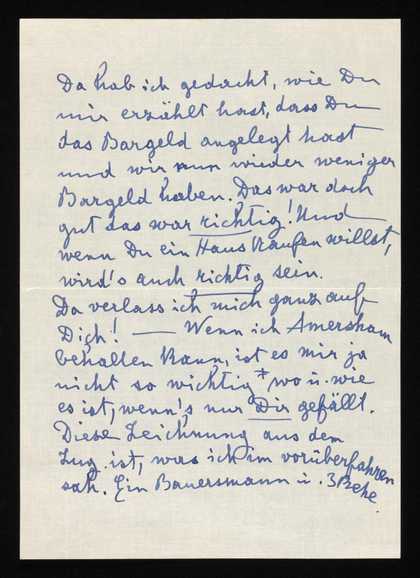 Da hab ich gedacht, wie Du
mir erzählt hast, dass Du
das Bargeld angelegt hast
und wir nun wieder weniger
Bargeld haben. Das war doch
gut das war richtig! Und
wenn Du ein Haus kaufen willst,
wird's auch richtig sein.
Da verlass ich mich ganz auf
Dich! — Wenn ich Amersham
behalten kann, ist es mir ja
nicht so wichtig * wo u. wie
es ist, wenn's nur Dir gefällt.
Diese Zeichnung aus dem
Zug ist, was ich im vorüberfahren
sah. Ein Bauersmann u. 3 Rehe.